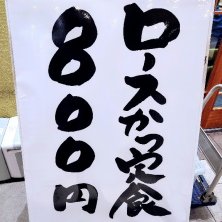 ロースかつ定食
800円